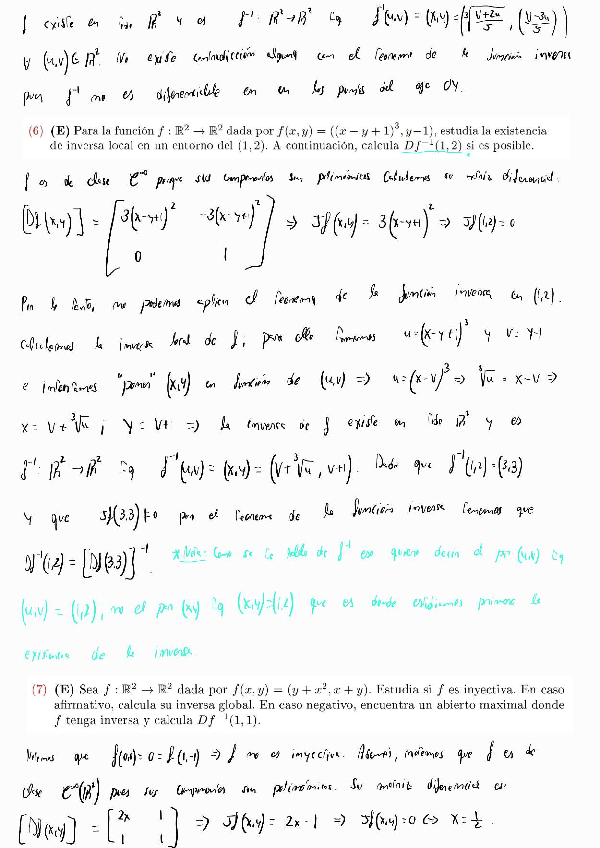 f existe en todo ℝ² y es f⁻¹: ℝ²→ℝ² tq f⁻¹(u,v) = (x,y) = (∛((v+2u)/5), ((v-3u)/5))
∀ (u,v) ∈ ℝ². No existe contradicción alguna con el teorema de la función inversa
pues f⁻¹ no es diferenciable en en los puntos del eje OY.
(6) (E) Para la función f : ℝ² → ℝ² dada por f(x, y) = ((x − y + 1)³, y−1), estudia la existencia
de inversa local en un entorno del (1, 2). A continuación, calcula Df⁻¹(1, 2) si es posible.
f es de clase C^∞ porque sus componentes son polinómicas. Calculemos su matriz diferencial.
[Df(x,y)] = [3(x-y+1)² -3(x-y+1)² ; 0 1] => Jf(x,y) = 3(x-y+1)² => Jf(1,2) = 0
Por lo tanto, no podemos aplicar el teorema de la función inversa en (1,2).
Calculemos la inversa local de f; para ello tomamos u=(x-y+1)³ y v= y-1
e intentamos "poner" (x,y) en función de (u,v) => u=(x-v)³ => ∛u = x-v =>
x = v+∛u ; y = v+1 => la inversa de f existe en todo ℝ² y es
f⁻¹: ℝ²→ℝ² tq f⁻¹(u,v) = (x,y) = (v+∛u, v+1). Dado que f⁻¹(1,2) = (3,3)
y que Jf(3,3) ≠ 0 por el teorema de la función inversa tenemos que
Df⁻¹(1,2) = [Df(3,3)]⁻¹. * Nota: Como se te habla de f⁻¹ eso quiere decir el par (u,v) tq
(u,v) = (1,2), no el par (x,y) tq (x,y)=(1,2) que es donde estudiamos primero la
existencia de la inversa
(7) (E) Sea f : ℝ² → ℝ² dada por f(x, y) = (y + x², x + y). Estudia si f es inyectiva. En caso
afirmativo, calcula su inversa global. En caso negativo, encuentra un abierto maximal donde
f tenga inversa y calcula Df⁻¹(1, 1).
Notemos que f(0,0) = 0 = f(1,-1) => f no es inyectiva. Además, notemos que f es de
clase C^∞(ℝ²) pues sus componentes son polinómicas. Su matriz diferencial es:
[Df(x,y)] = [2x 1 ; 1 1] => Jf(x,y) = 2x - 1 => Jf(x,y) = 0 <-> x = 1/2.